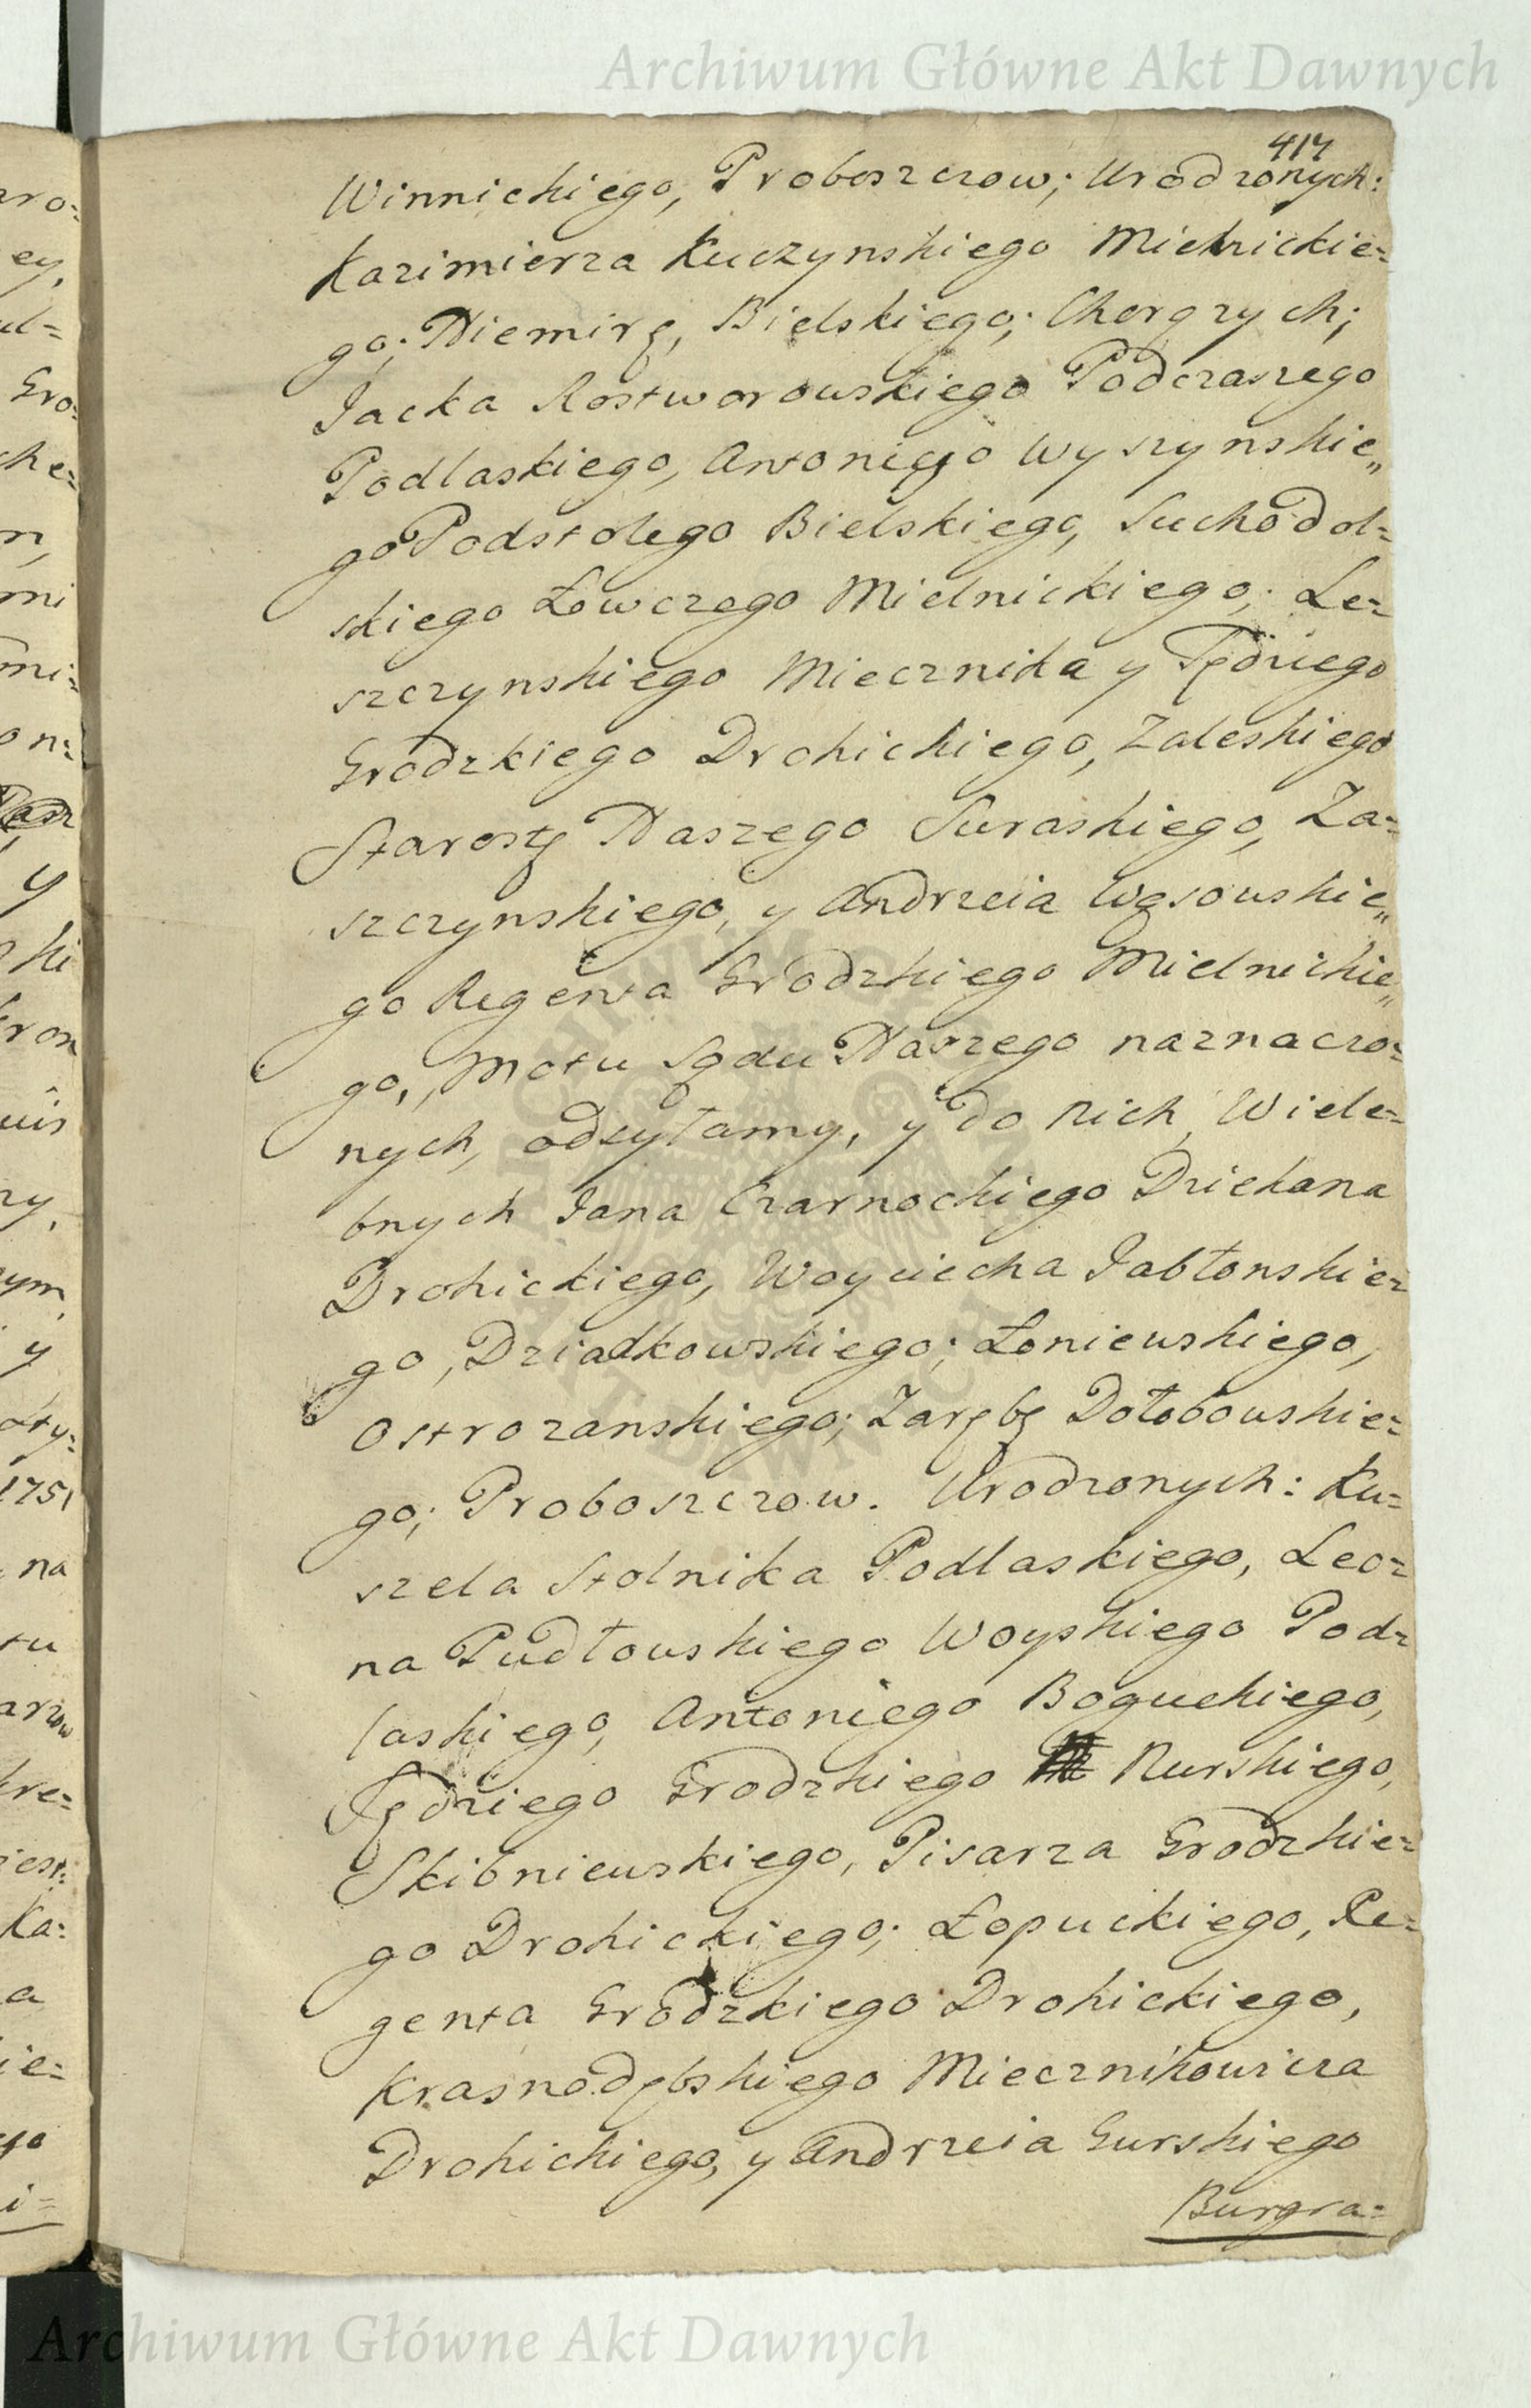 Archiwum Główne Akt Dawnych
417
Winnickiego, Proboszczow; Urodzonych:
Kazimierza Kuczynskiego Mielnickie=
go; Niemirę, Bielskiego; Chorązych;
Jacka Rostworowskiego Podczaszego
Podlaskiego, Antoniego Wyszynskie„
go Podstolego Bielskiego, Suchodol=
skiego Łowczego Mielnickiego; Le=
szczynskiego Miecznika y Sędziego
Grodzkiego Drohickiego, Zaleskiego
Starostę Naszego Suraskiego, Za=
szczynskiego, y Andrzeia Wąsowskie„
go Regenta Grodzkiego Mielnickie„
go, Motu Sądu Naszego naznaczo=
nych, odsyłamy, y do Nich, Wiele=
bnych Jana Czarnockiego Dziekana
Drohickiego, Woyciecha Jabłonskie=
go, Dziadkowskiego; Łoniewskiego,
Ostrozanskiego; Zarębę Dołobowskie=
go; Proboszczow. Urodzonych: Ku=
szela Stolnika Podlaskiego, Leo=
na Pudłowskiego Woyskiego Pod=
laskiego, Antoniego Boguckiego,
Sędziego Grodzkiego Nurskiego,
Skibniewskiego, Pisarza Grodzkie=
go Drohickiego; Łopuckiego, Re=
genta Grodzkiego Drohickiego,
Krasnodębskiego Miecznikowicza
Drohickiego, y Andrzeia Gurskiego
Burgra=
Archiwum Główne Akt Dawnych